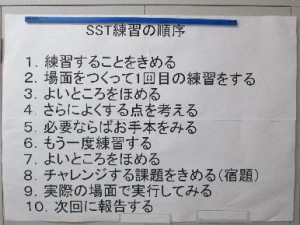 SST練習の順序
1. 練習することをきめる
2. 場面をつくって1回目の練習をする
3. よいところをほめる
4. さらによくする点を考える
5. 必要ならばお手本をみる
6. もう一度練習する
7. よいところをほめる
8. チャレンジする課題をきめる(宿題)
9. 実際の場面で実行してみる
10. 次回に報告する